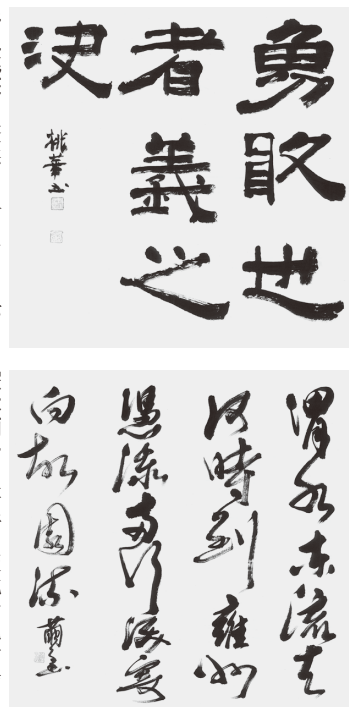 勇敢也
者義之
決
桃華書
渭水東流去
何時到雍州
憑添両行涙寄
向故園流